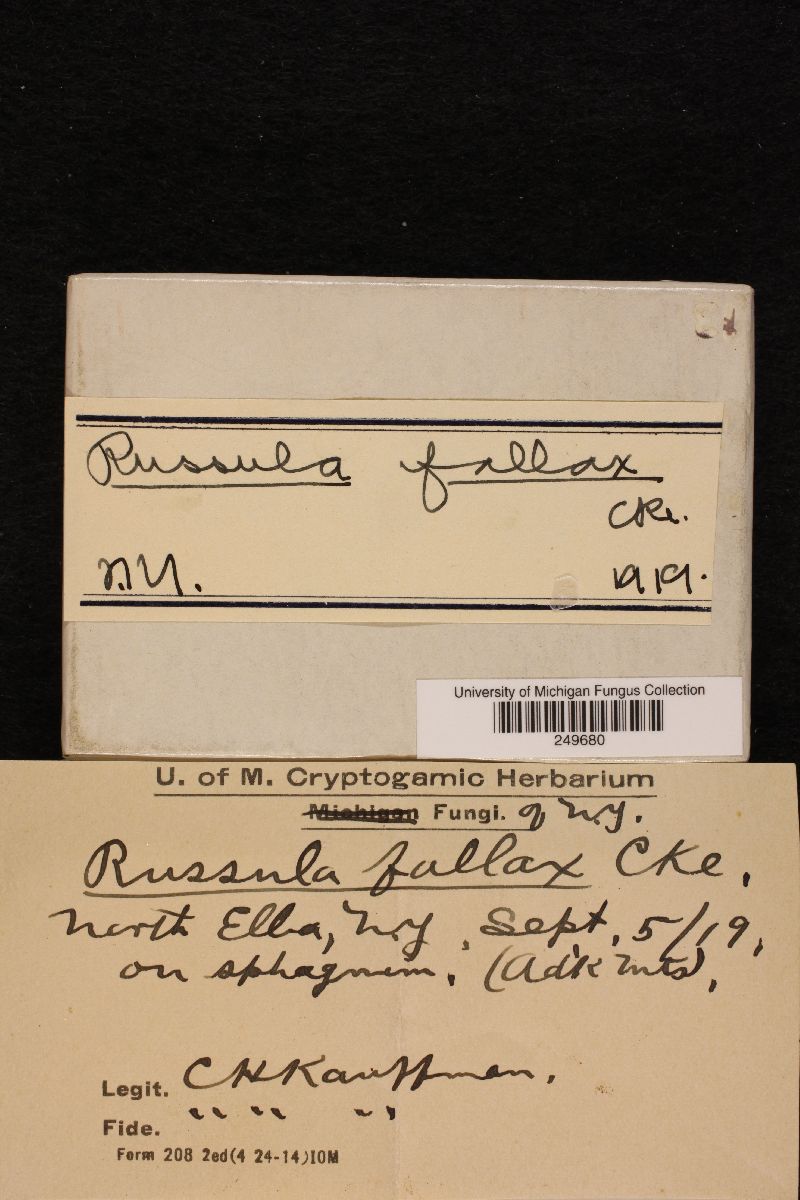 Russula fallax
Cke.
N.Y. 1919.
University of Michigan Fungus Collection
249680
U. of M. Cryptogamic Herbarium
Michigan Fungi. of N.Y.
Russula fallax Cke.
North Elba, N.Y., Sept. 5/19,
on sphagnum. (Adk Mts),
Legit. C H Kauffman.
Fide. " " " "
Form 208 2ed(4 24-14)10M